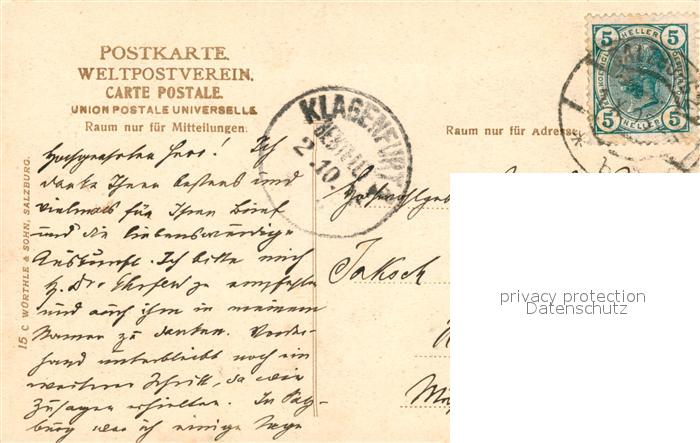 POSTKARTE.
WELTPOSTVEREIN.
CARTE POSTALE.
UNION POSTALE UNIVERSELLE
Raum nur für Mitteilungen:
Raum nur für Adresse
5 HELLER 5
5 HELLER 5
KLAGENFURT
2.10
Hochgeehrter Herr! Ich
danke Ihnen bestens und
vielmals für Ihren Brief
und die liebenswürdige
Auskunft. Ich bitte mich
H. Dr. zu empfehlen
und auch ihm in meinem
Namen zu danken. Vorder-
hand unterbleibt noch ein
weiterer Schritt, da wir
Zusagen erhielten. In Salz-
burg war ich einige Tage
Jaksch
15 C WÜRTHLE & SOHN, SALZBURG.
privacy protection
Datenschutz